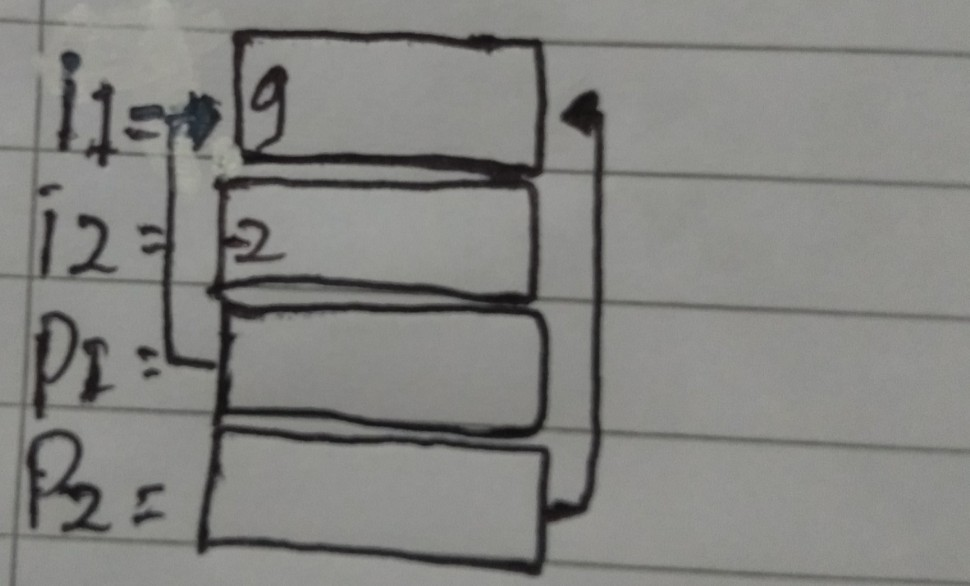 i1= 9
i2= -2
P1=
P2=